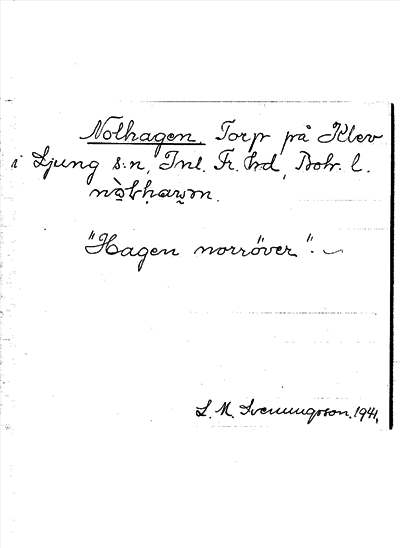 Nolhagen. Torp på Klev
i Ljung s:n, Inl. Fr. hd, Boh. l.
"Hagen norröver".
S. M. Svenungsson. 1941.